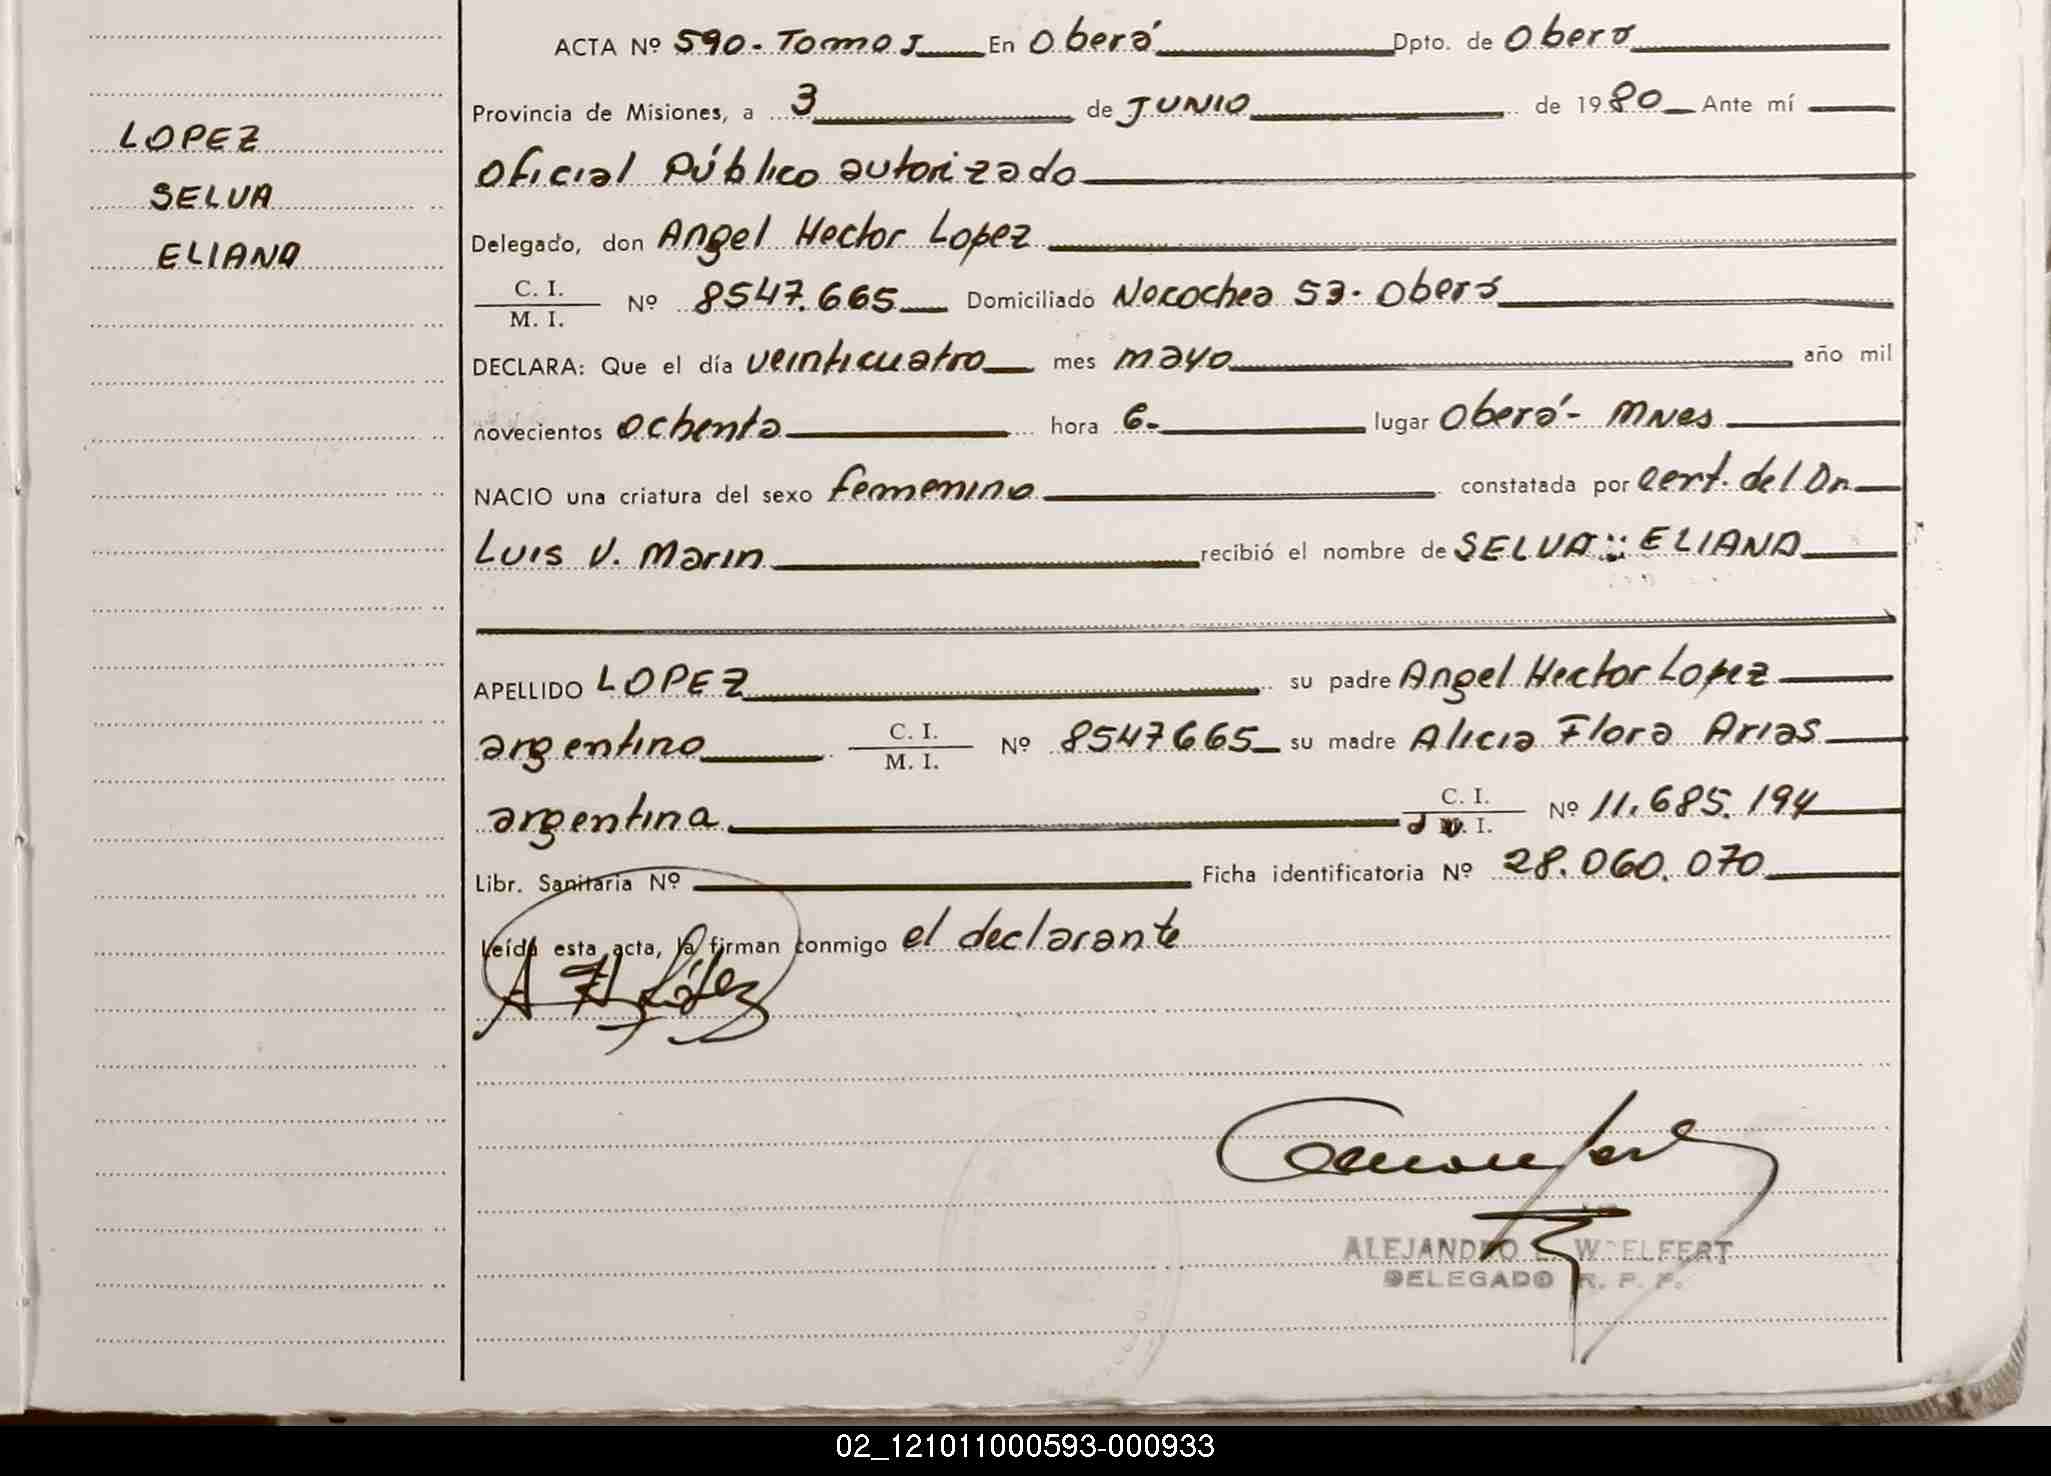 LOPEZ
SELVA
ELIANA
ACTA Nº 590- Tomo I En Oberá Dpto. de Oberá
Provincia de Misiones, a 3 de JUNIO de 1980 Ante mí
Oficial Público autorizado
Delegado, don Angel Hector Lopez
C. I.
M. I. Nº 8547.665 Domiciliado Necochea 53- Oberá
DECLARA: Que el día veinticuatro mes mayo año mil
novecientos ochenta hora 6- lugar Oberá- Mnes
NACIO una criatura del sexo femenino constatada por cert. del Dr.
Luis V. Marin recibió el nombre de SELVA :: ELIANA
APELLIDO LOPEZ su padre Angel Hector Lopez
argentino C. I.
M. I. Nº 8547665 su madre Alicia Flora Arias
argentina C. I.
I. Nº 11.685.194
Libr. Sanitaria Nº Ficha identificatoria Nº 28.060.070
Leída esta acta, la firman conmigo el declarante
A H López
ALEJANDRO WOELFERT
DELEGADO R. P. P.
02_121011000593-000933